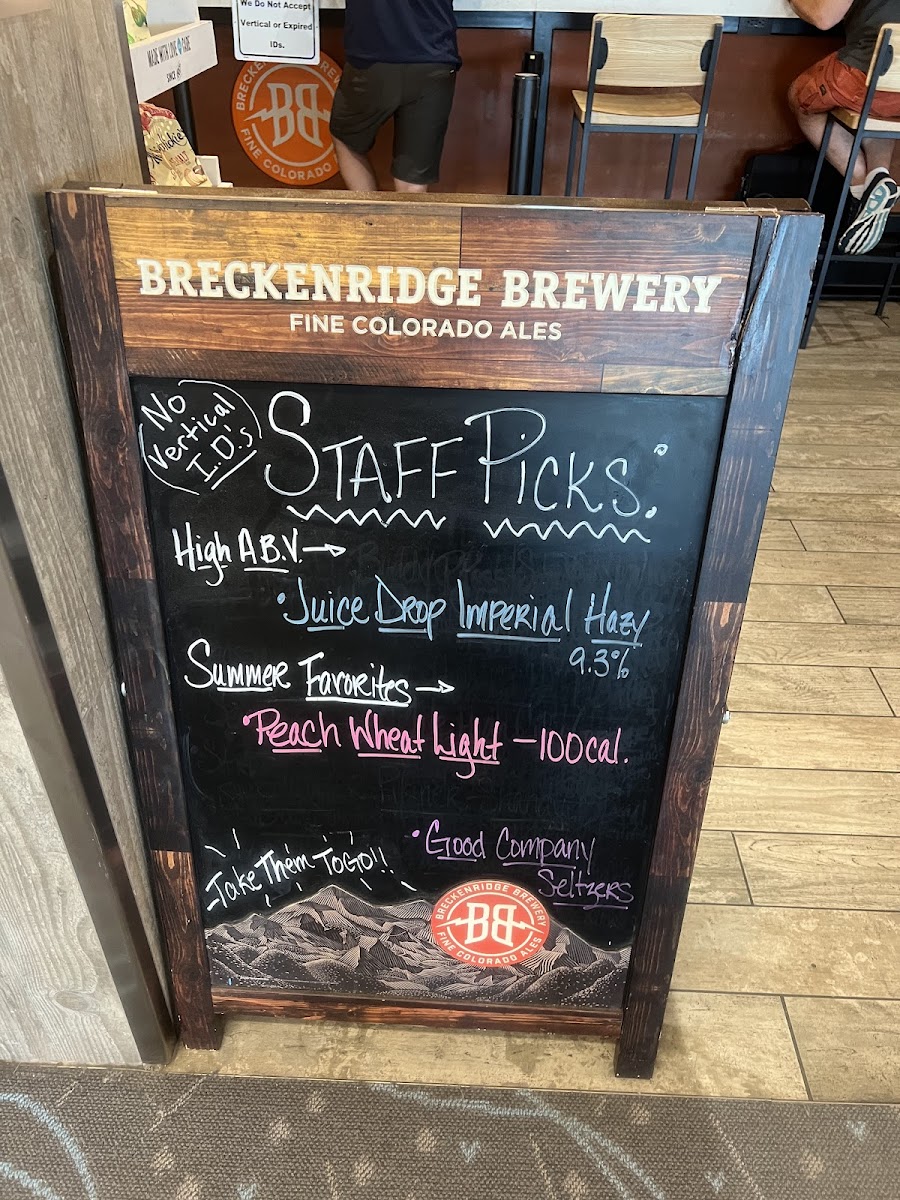 We Do Not Accept
Vertical or Expired
IDs.
MADE WITH LOVE & CARE
BRECKENRIDGE BREWERY
BB
FINE COLORADO
BRECKENRIDGE BREWERY
FINE COLORADO ALES
No
Vertical
I.D.'s
STAFF PICKS:
High A.B.V. →
• Juice Drop Imperial Hazy
9.3%
Summer Favorites →
• Peach Wheat Light - 100cal.
• Good Company
Seltzers
Take Them ToGO!!
BRECKENRIDGE BREWERY
BB
FINE COLORADO ALES